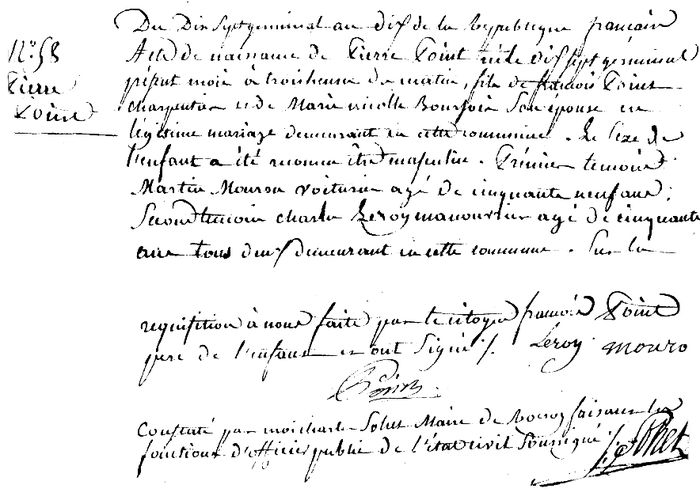 Du Dix Sept germinal an dix de la republique francaise
N.º 58
Pierre
Point
Acte de naissance de Pierre Point né le dix sept germinal
présent mois à trois heures du matin, fils de francois Point
charpentier et de Marie nicolle Bourgoin Son épouse en
légitime mariage demeurant en cette commune. Le Sexe de
l'enfant a été reconnu être masculin. Prémier temoin
Martin Mouron voiturier agé de cinquante neuf ans;
Second temoin charles Leroy manouvrier agé de cinquante
ans tous deux demeurant en cette commune. Sur la
requisition à nous faite par le citoyen francois Point
pere de l'enfant et ont Signé /. Leroy mouro
Point
Constaté par moi charles Solut Maire de Rocroy faisant les
fonctions d'officier public de l'état civil Soussigné /.